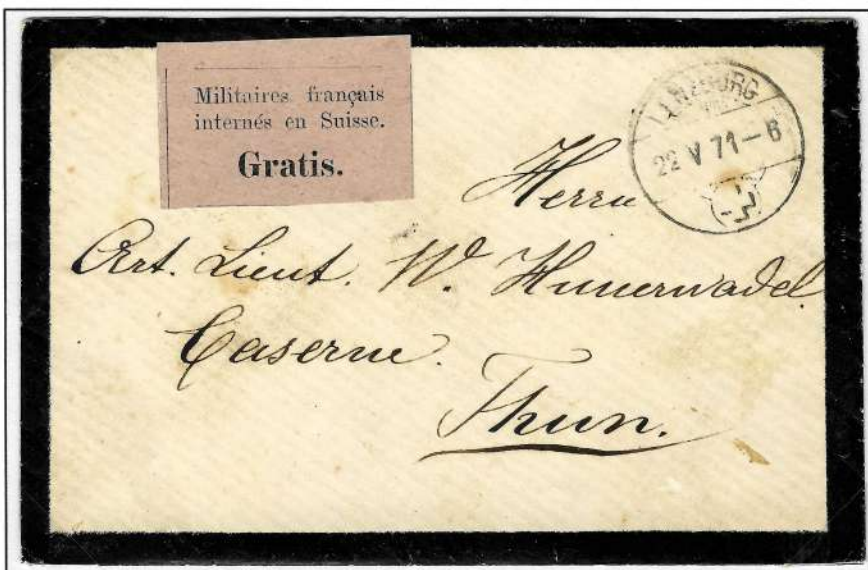 Militaires français
internés en Suisse.
Gratis.
LENZBURG
22 V 71–6
Herrn
Art. Lieut. W. Hünerwadel.
Caserne.
Thun.